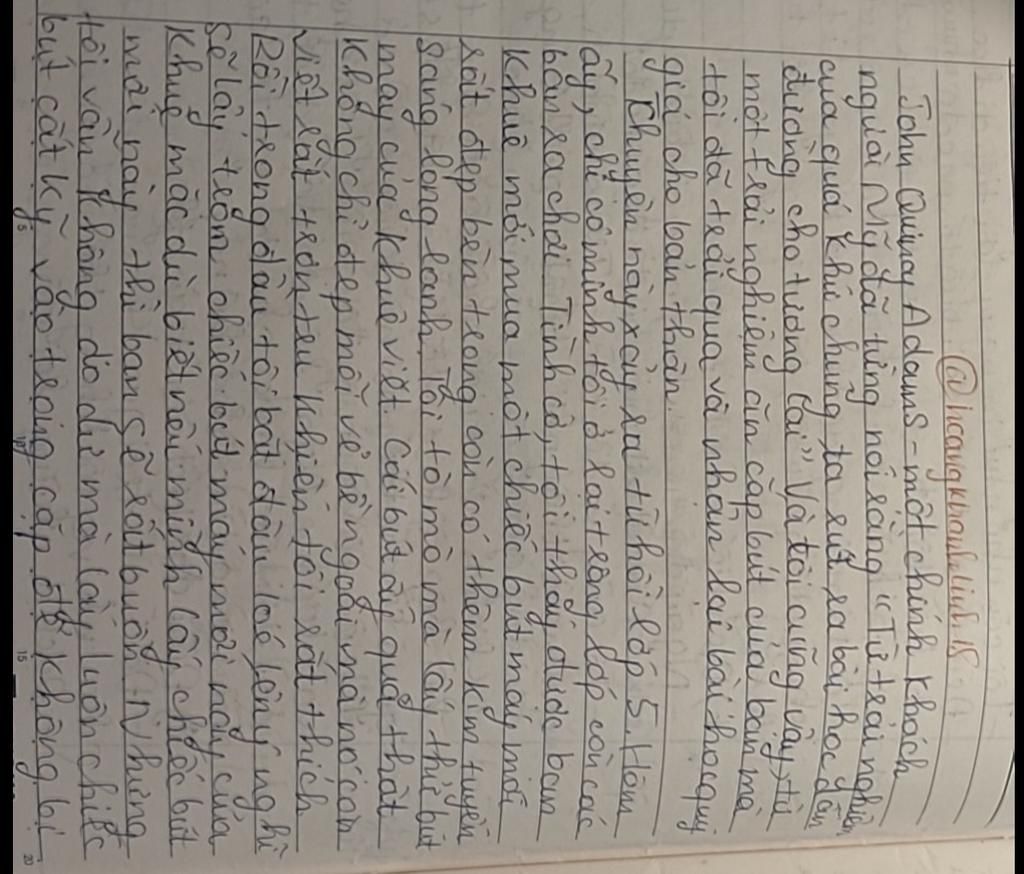 @hcangkhanh.linh.18
John Quincy Adams - một chính khách
người Mỹ đã từng nói rằng "Từ trải nghiệm
của quá khứ chúng ta rút ra bài học dẫn
đường cho tương lai" Và tôi cũng vậy, từ
một trải nghiệm ăn cắp bút của bạn mà
tôi đã trải qua và nhận lại bài học quý
giá cho bản thân.
Chuyện này xảy ra từ hồi lớp 5. Hôm
ấy, chỉ có mình tôi ở lại trong lớp còn các
bạn ra chơi. Tình cờ, tôi thấy được bạn
Khuê mới mua một chiếc bút máy mới
rất đẹp bên trong còn có thêm kim tuyến
sáng long lanh. Tôi tò mò mà lấy thử bút
máy của Khuê viết. Cái bút ấy quả thật
không chỉ đẹp mỗi vẻ bề ngoài mà nó còn
viết rất trơn tru khiến tôi rất thích.
Rồi trong đầu tôi bắt đầu loé lên ý nghĩ
sẽ lấy trộm chiếc bút máy mới này của
Khuê mặc dù biết nếu mình lấy chiếc bút
mới này thì bạn sẽ rất buồn. Nhưng
tôi vẫn không do dự mà lấy luôn chiếc
bút cất kỹ vào trong cặp để không bị
5
10
15
20